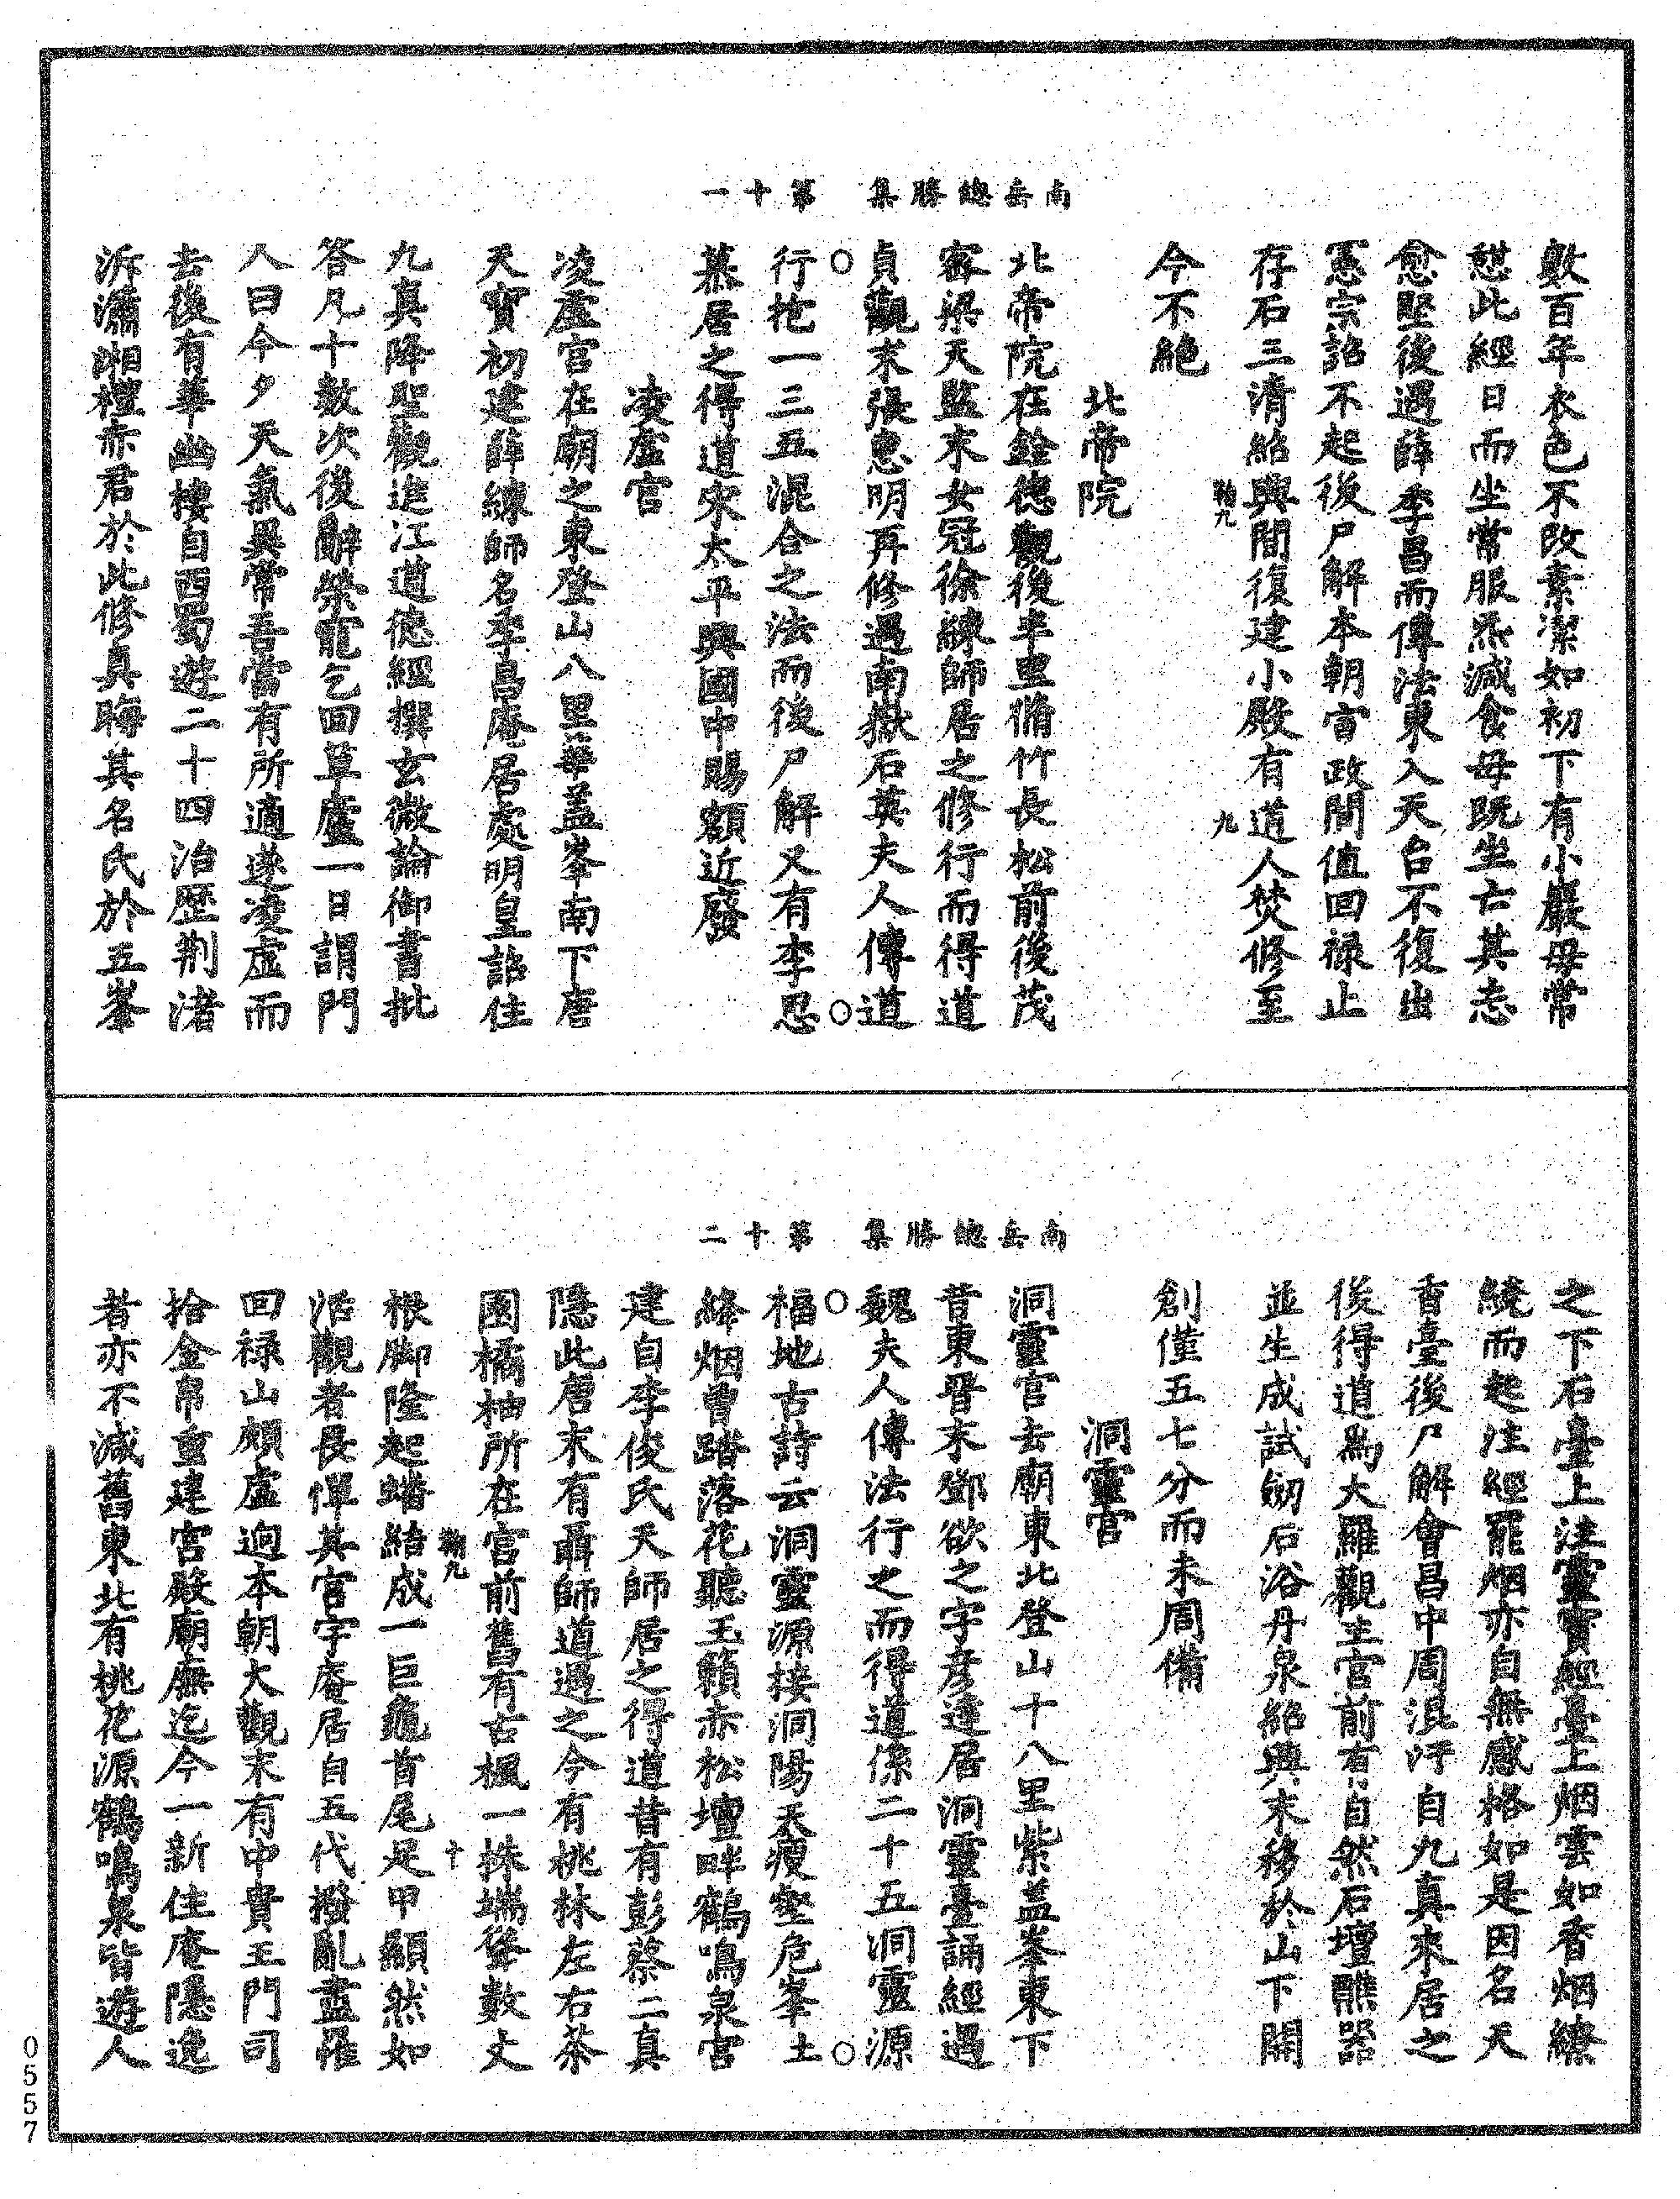 南岳總勝集　第十一
數百年衣色不改素潔如初下有小巖毋常
憇此經日而坐常服炁減食毋既坐亡其志
愈堅後遇薛季昌而傳法東入天台不復出
憲宗詔不起後尸解本朝宣政間值回祿止
存石三清紹興間復建小殿有道人焚修至
鞠九　九
今不絕
北帝院
北帝院在銓德觀後半里脩竹長松前後茂
密梁天監末女冠徐練師居之修行而得道
貞觀末張惠明再修遇南嶽石英夫人傳道
行抱一三五混合之法而後尸解又有李思
慕居之得道宋太平興國中賜額近廢
凌虛宮
凌虛宮在廟之東登山八里華蓋峯南下唐
天寶初建薛練師名季昌庵居處明皇詔住
九真降聖觀進江道德經撰玄微論御書批
答凡十數次後辭榮寵乞回草廬一日謂門
人曰今夕天氣異常吾當有所適遂凌虛而
去後有華幽棲自西蜀遊二十四治歷荆渚
泝瀟湘禮赤君於此修真晦其名氏於五峯
南岳總勝集　第十二
之下石臺上注靈寶經臺上烟雲如香烟繚
繞而起注經罷烟亦自無感格如是因名天
香臺後尸解會昌中周混汙自九真來居之
後得道為大羅觀主宮前有自然石壇醮器
並生成試劒石浴丹泉紹興末移於山下開
創僅五七分而未周備
洞靈宮
洞靈宮去廟東北登山十八里紫蓋峯東下
昔東晉末鄧欲之字彦達居洞靈臺誦經遇
魏夫人傳法行之而得道係二十五洞靈源
福地古詩云洞靈源接洞陽天瘦壑危峯土
絳烟曾踏落花聽玉籟赤松壇畔鶴鳴泉宮
建自李俊氏天師居之得道昔有彭蔡二真
隱此唐末有聶師道過之今有桃林左右茶
園橘柚所在宮前舊有古楓一株端聳數丈
鞠九　十
根脚隆起蟠結成一巨龜首尾足甲顯然如
活觀者長憚其宮宇庵居自五代撥亂盡罹
回祿山頗虛迥本朝大觀末有中貴王門司
拾金帛重建宮殿廟廡迄今一新住庵隱逸
者亦不減舊東北有桃花源鶴鳴泉皆遊人
0557